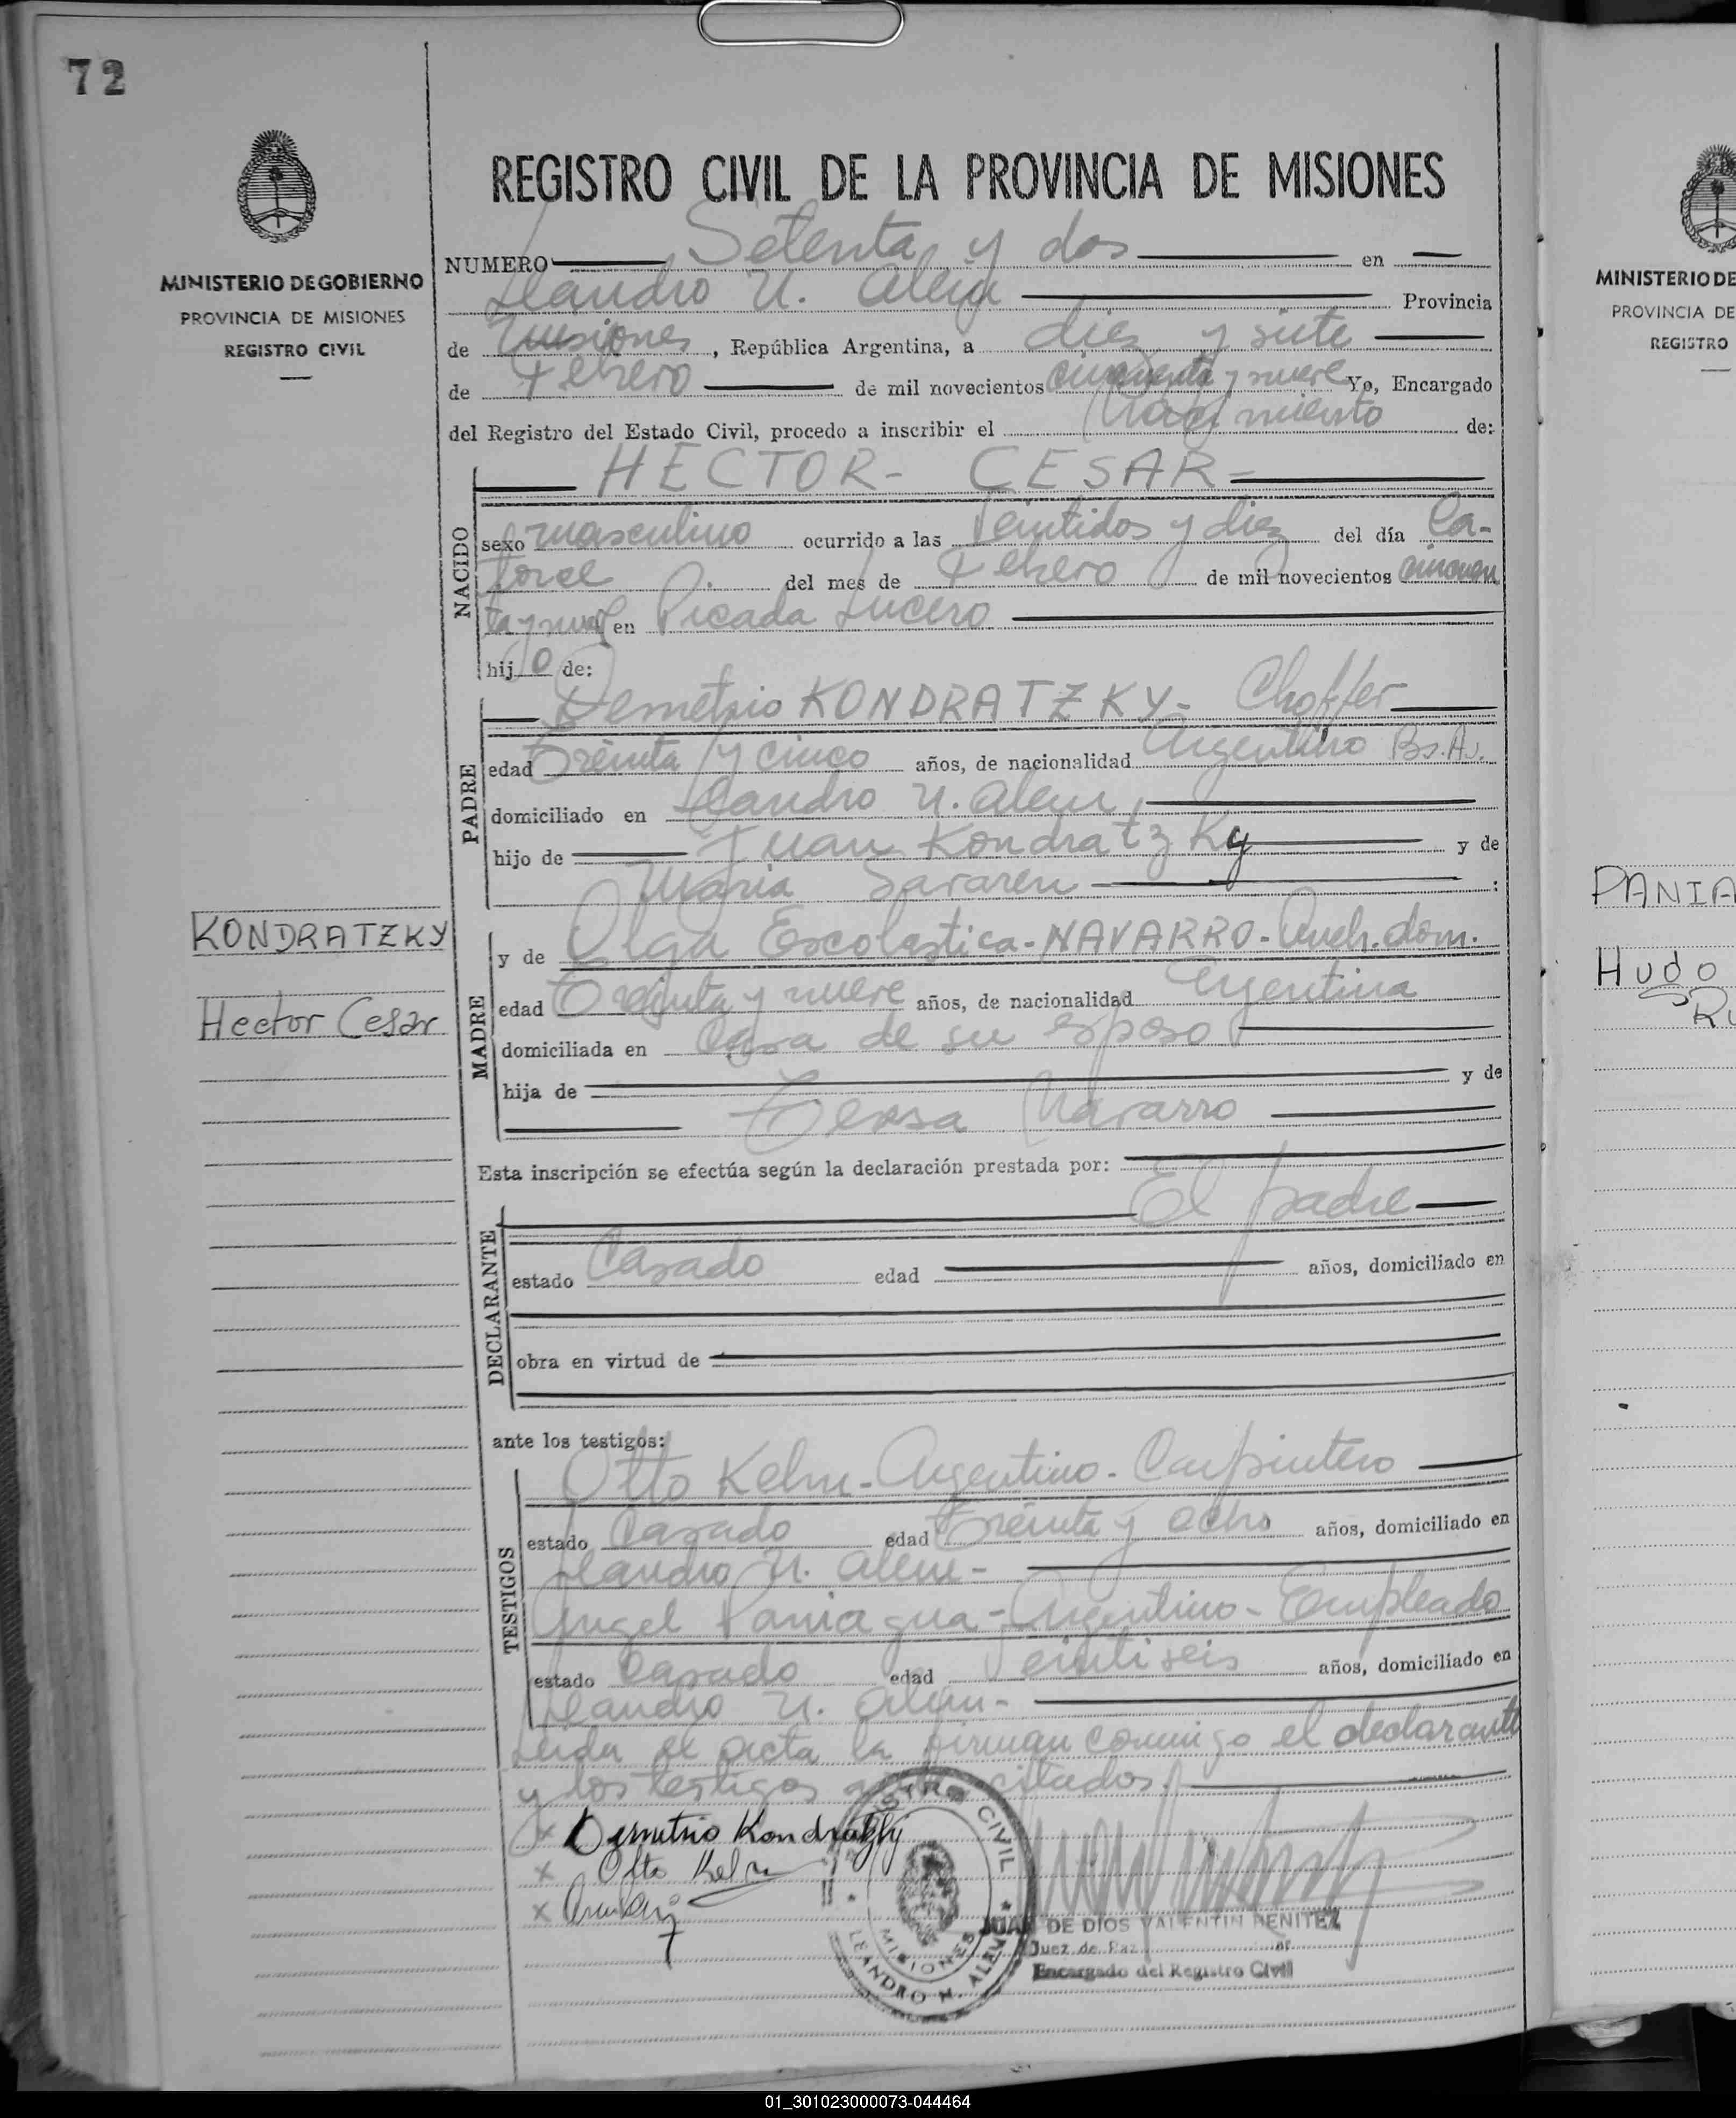 72
MINISTERIO DE GOBIERNO
PROVINCIA DE MISIONES
REGISTRO CIVIL
KONDRATZKY
Hector Cesar
REGISTRO CIVIL DE LA PROVINCIA DE MISIONES
NUMERO Setenta y dos en
Leandro N. Alem Provincia
de Misiones, República Argentina, a diez y siete
de Febrero de mil novecientos cincuenta y nueve Yo, Encargado
del Registro del Estado Civil, procedo a inscribir el Nacimiento de:
HECTOR- CESAR-
NACIDO
sexo masculino ocurrido a las Veintidos y diez del día Ca-
torce del mes de Febrero de mil novecientos cincuen
ta y nueve en Picada Lucero
hijo de:
PADRE
Demetrio KONDRATZKY- Choffer
edad Treinta y cinco años, de nacionalidad Argentino Bs. As.
domiciliado en Leandro N. Alem
hijo de Juan Kondratzky y de
Maria :
MADRE
y de Olga Escolastica-NAVARRO- dom.
edad Treinta y nueve años, de nacionalidad Argentina
domiciliada en Casa de su esposo
hija de y de
Navarro
Esta inscripción se efectúa según la declaración prestada por:
El padre
DECLARANTE
estado Casado edad años, domiciliado en
obra en virtud de
ante los testigos:
TESTIGOS
Otto Kelm-Argentino-Carpintero
estado Casado edad Treinta y ocho años, domiciliado en
Leandro N. Alem-
Angel Paniagua-Argentino-Empleado
estado Casado edad Veintiseis años, domiciliado en
Leandro N. Alem-
Leida el acta la firman conmigo el declarante
y los testigos citados.
x Demetrio Kondratzky
x Otto Kelm
x
REGISTRO CIVIL
MISIONES
LEANDRO N. ALEM
JUAN DE DIOS VALENTIN BENITEZ
Juez de Paz
Encargado del Registro Civil
MINISTERIO DE
PROVINCIA DE
REGISTRO
PANIA
Hugo
Ru
01_301023000073-044464